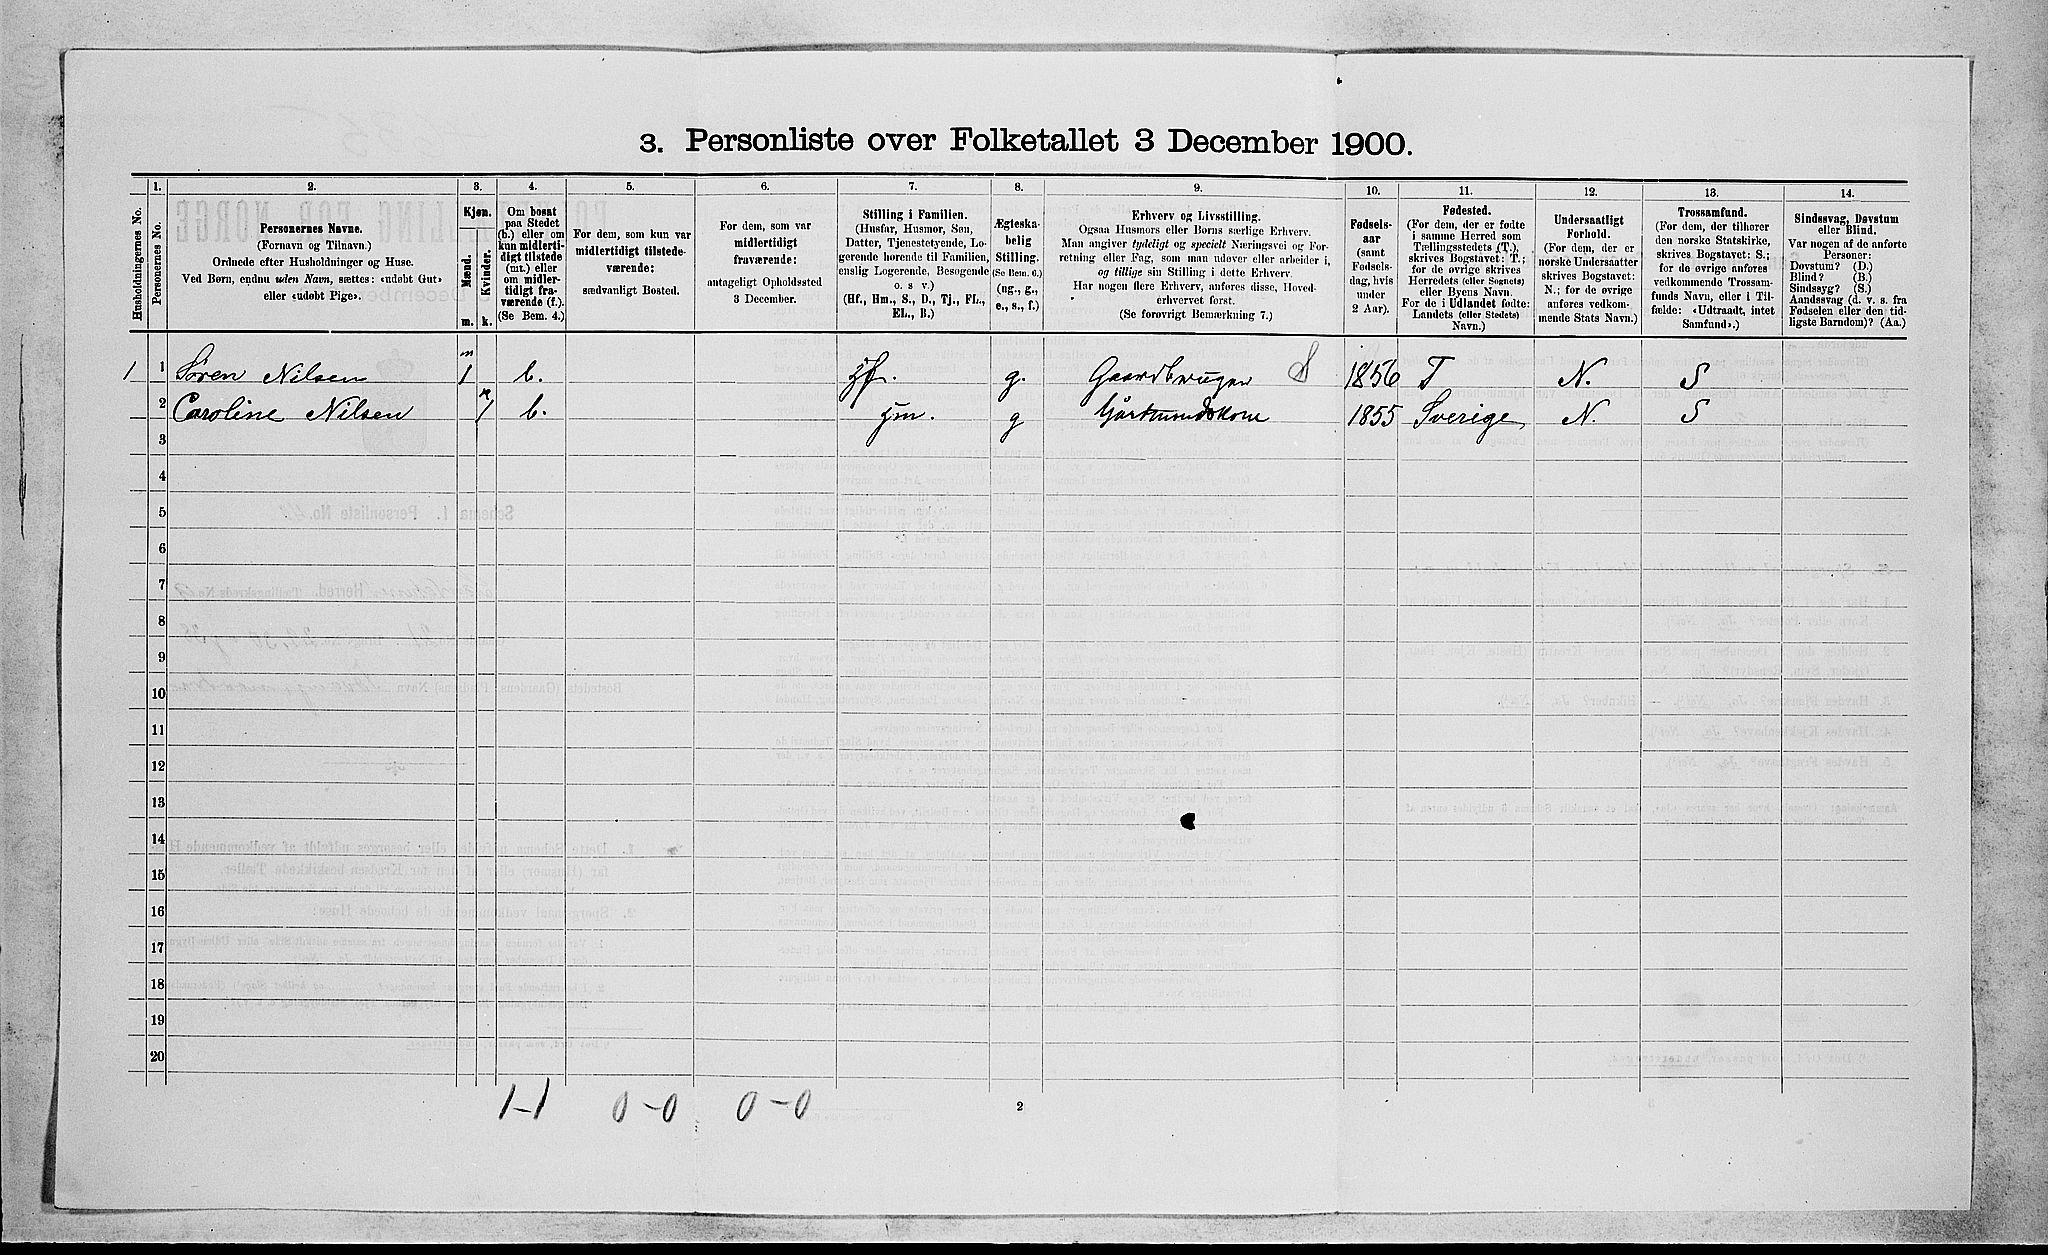 3. Personliste over Folketallet 3 December 1900.
1. 2. 3. 4. 5. 6. 7. 8. 9. 10. 11. 12. 13. 14.
Husholdningernes No.
Personernes No.
Personernes Navne.
(Fornavn og Tilnavn.)
Ordnede efter Husholdninger og Huse.
Ved Børn, endnu uden Navn, sættes: «udøbt Gut»
eller «udøbt Pige».
Kjøn.
Mænd.
Kvinder.
m. k.
Om bosat
paa Stedet
(b.) eller om
kun midlerti-
digt tilstede
(mt.) eller
om midler-
tidigt fra-
værende (f.).
(Se Bem. 4.)
For dem, som kun var
midlertidigt tilstede-
værende:
sædvanligt Bosted.
For dem, som var
midlertidigt
fraværende:
antageligt Opholdssted
3 December.
Stilling i Familien.
(Husfar, Husmor, Søn,
Datter, Tjenestetyende, Lo-
gerende hørende til Familien,
enslig Logerende, Besøgende
o. s v.)
(Hf., Hm., S., D., Tj., FL.,
EL., B.)
Ægteska-
belig
Stilling.
(Se Bem. 6.)
(ug., g.,
e., s., f.)
Erhverv og Livsstilling.
Ogsaa Husmors eller Børns særlige Erhverv.
Man angiver tydeligt og specielt Næringsvei og For-
retning eller Fag, som man udøver eller arbeider i,
og tillige sin Stilling i dette Erhverv.
Har nogen flere Erhverv, anføres disse, Hoved-
erhvervet først.
(Se forøvrigt Bemærkning 7.)
Fødsels-
aar
(samt
Fødsels-
dag, hvis
under
2 Aar).
Fødested.
(For dem, der er fødte
i samme Herred som
Tællingsstedets (T.),
skrives Bogstavet: T.;
for de øvrige skrives
Herredets (eller Sognets)
eller Byens Navn.
For de i Udlandet fødte:
Landets (eller Stedets)
Navn.)
Undersaatligt
Forhold.
(For dem, der er
norske Undersaatter
skrives Bogstavet:
N.; for de øvrige
anføres vedkom-
mende Stats Navn.)
Trossamfund.
(For dem, der tilhører
den norske Statskirke,
skrives Bogstavet: S.;
for de øvrige anføres
vedkommende Trossam-
funds Navn, eller i Til-
fælde: «Udtraadt, intet
Samfund».)
Sindssvag, Døvstum
eller Blind.
Var nogen af de anførte
Personer:
Døvstum? (D.)
Blind? (B.)
Sindssyg? (S.)
Aandssvag (d. v. s. fra
Fødselen eller den tid-
ligste Barndom)? (Aa.)
1 1 Søren Nilsen m 1 b. Hf. g. Gaardbruger S 1856 T N. S
2 Caroline Nilsen 1 b. Hm. g Gårdmandskone 1855 Sverige N. S
3
4
5
6
7
8
9
10
11
12
13
14
15
16
17
18
19
20
1-1 0-0 0-0
2